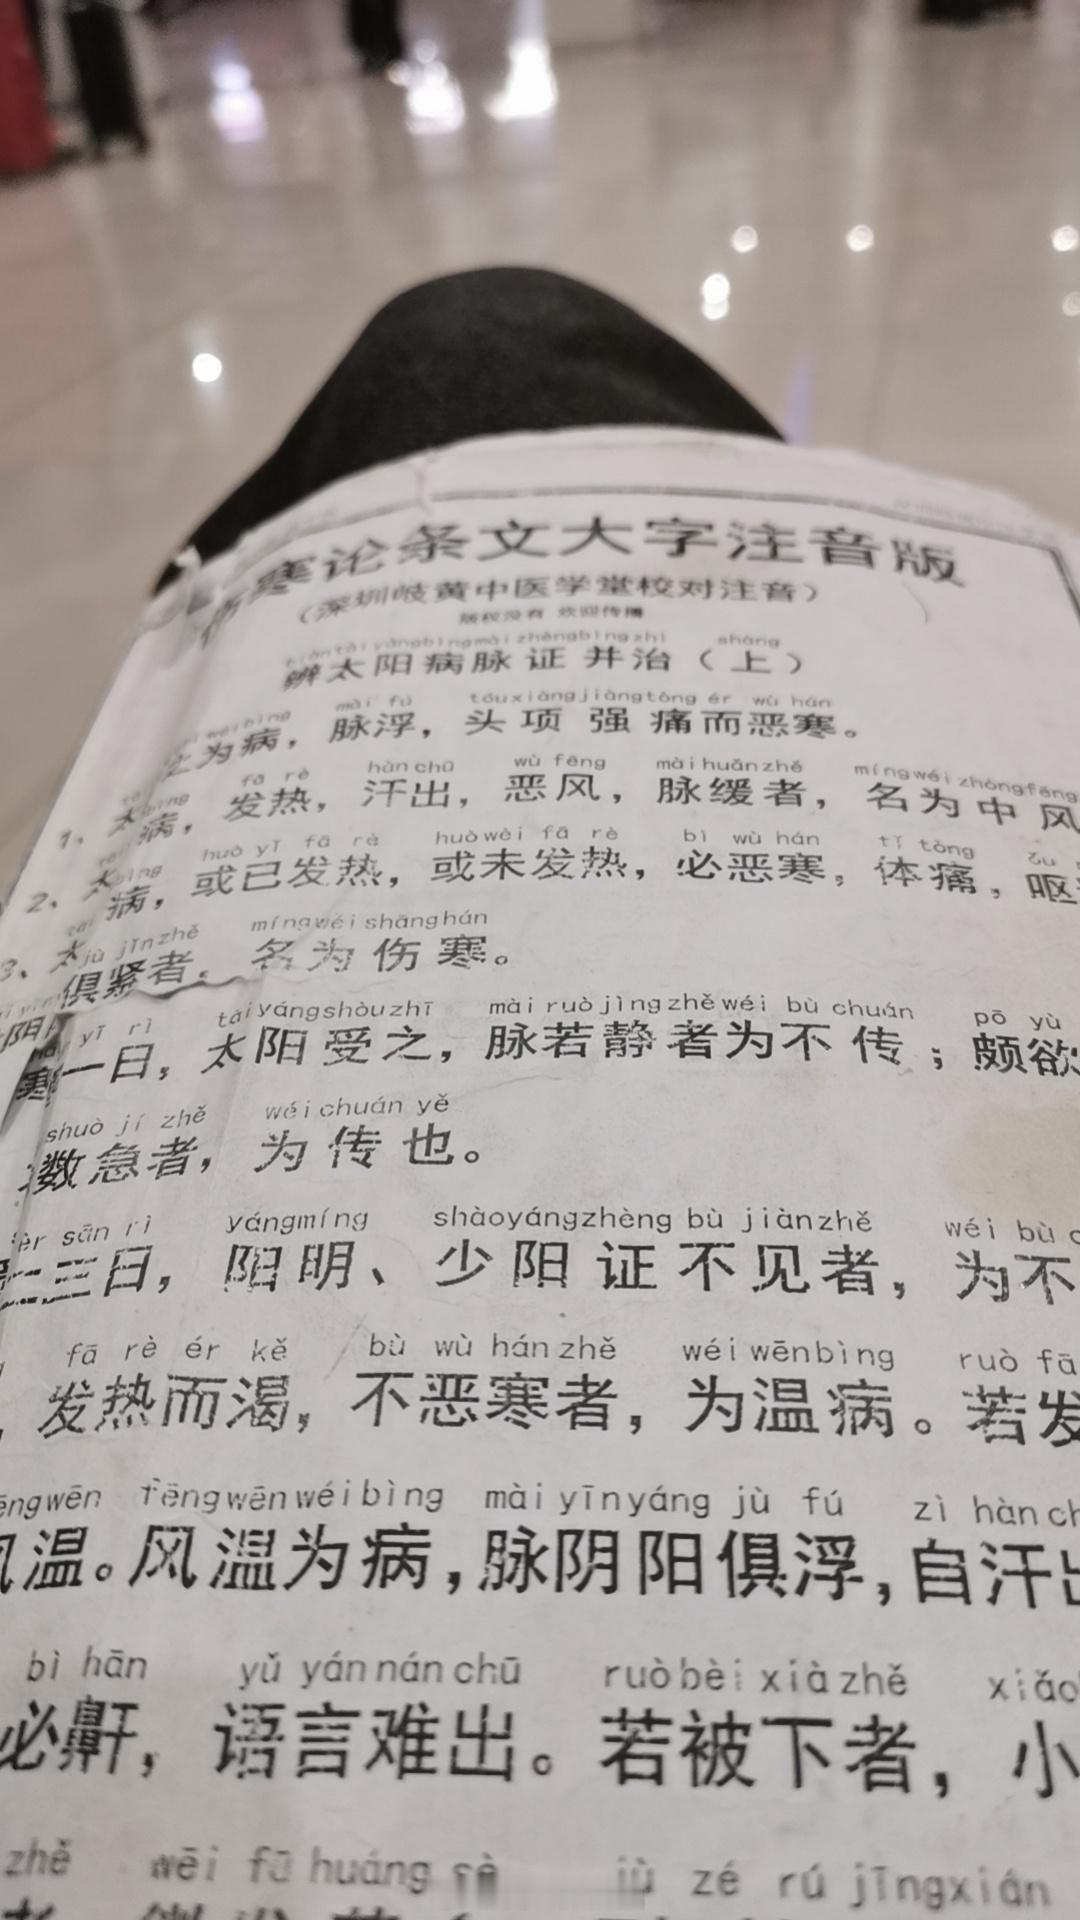 伤寒论条文大字注音版
(深圳岐黄中医学堂校对注音)
版权没有 欢迎传播
biàntàiyángbìngmàizhèngbìngzhì shàng
辨太阳病脉证并治(上)
wéibìng màifú tóuxiàngjiàngtòng ér wù hán
1、太 之为病,脉浮,头项强痛而恶寒。
bìng fā rè hànchū wù fēng màihuǎnzhě míngwéizhòngfēng
2、太 病,发热,汗出,恶风,脉缓者,名为中风
bìng huò yǐ fā rè huòwèi fā rè bì wù hán tǐ tòng ǒu
3、太 病,或已发热,或未发热,必恶寒,体痛,呕
jù jǐnzhě míngwéishānghán
阴 俱紧者,名为伤寒。
yī rì tàiyángshòuzhī màiruòjìngzhěwéi bù chuán pō yù
寒一日,太阳受之,脉若静者为不传;颇欲
shuò jí zhě wéichuán yě
数急者,为传也。
èr sān rì yángmíng shàoyángzhèng bù jiànzhě wéi bù
二三日,阳明、少阳证不见者,为不
fā rè ér kě bù wù hánzhě wéiwēnbìng ruò fā
,发热而渴,不恶寒者,为温病。若发
fēngwēn fēngwēnwéibìng màiyīnyáng jù fú zì hàn
风温。风温为病,脉阴阳俱浮,自汗出
bì hān yǔ yánnánchū ruòbèixiàzhě xiǎo
必鼾,语言难出。若被下者,小
zhě wēi fā huáng sè jù zé rú jīngxián